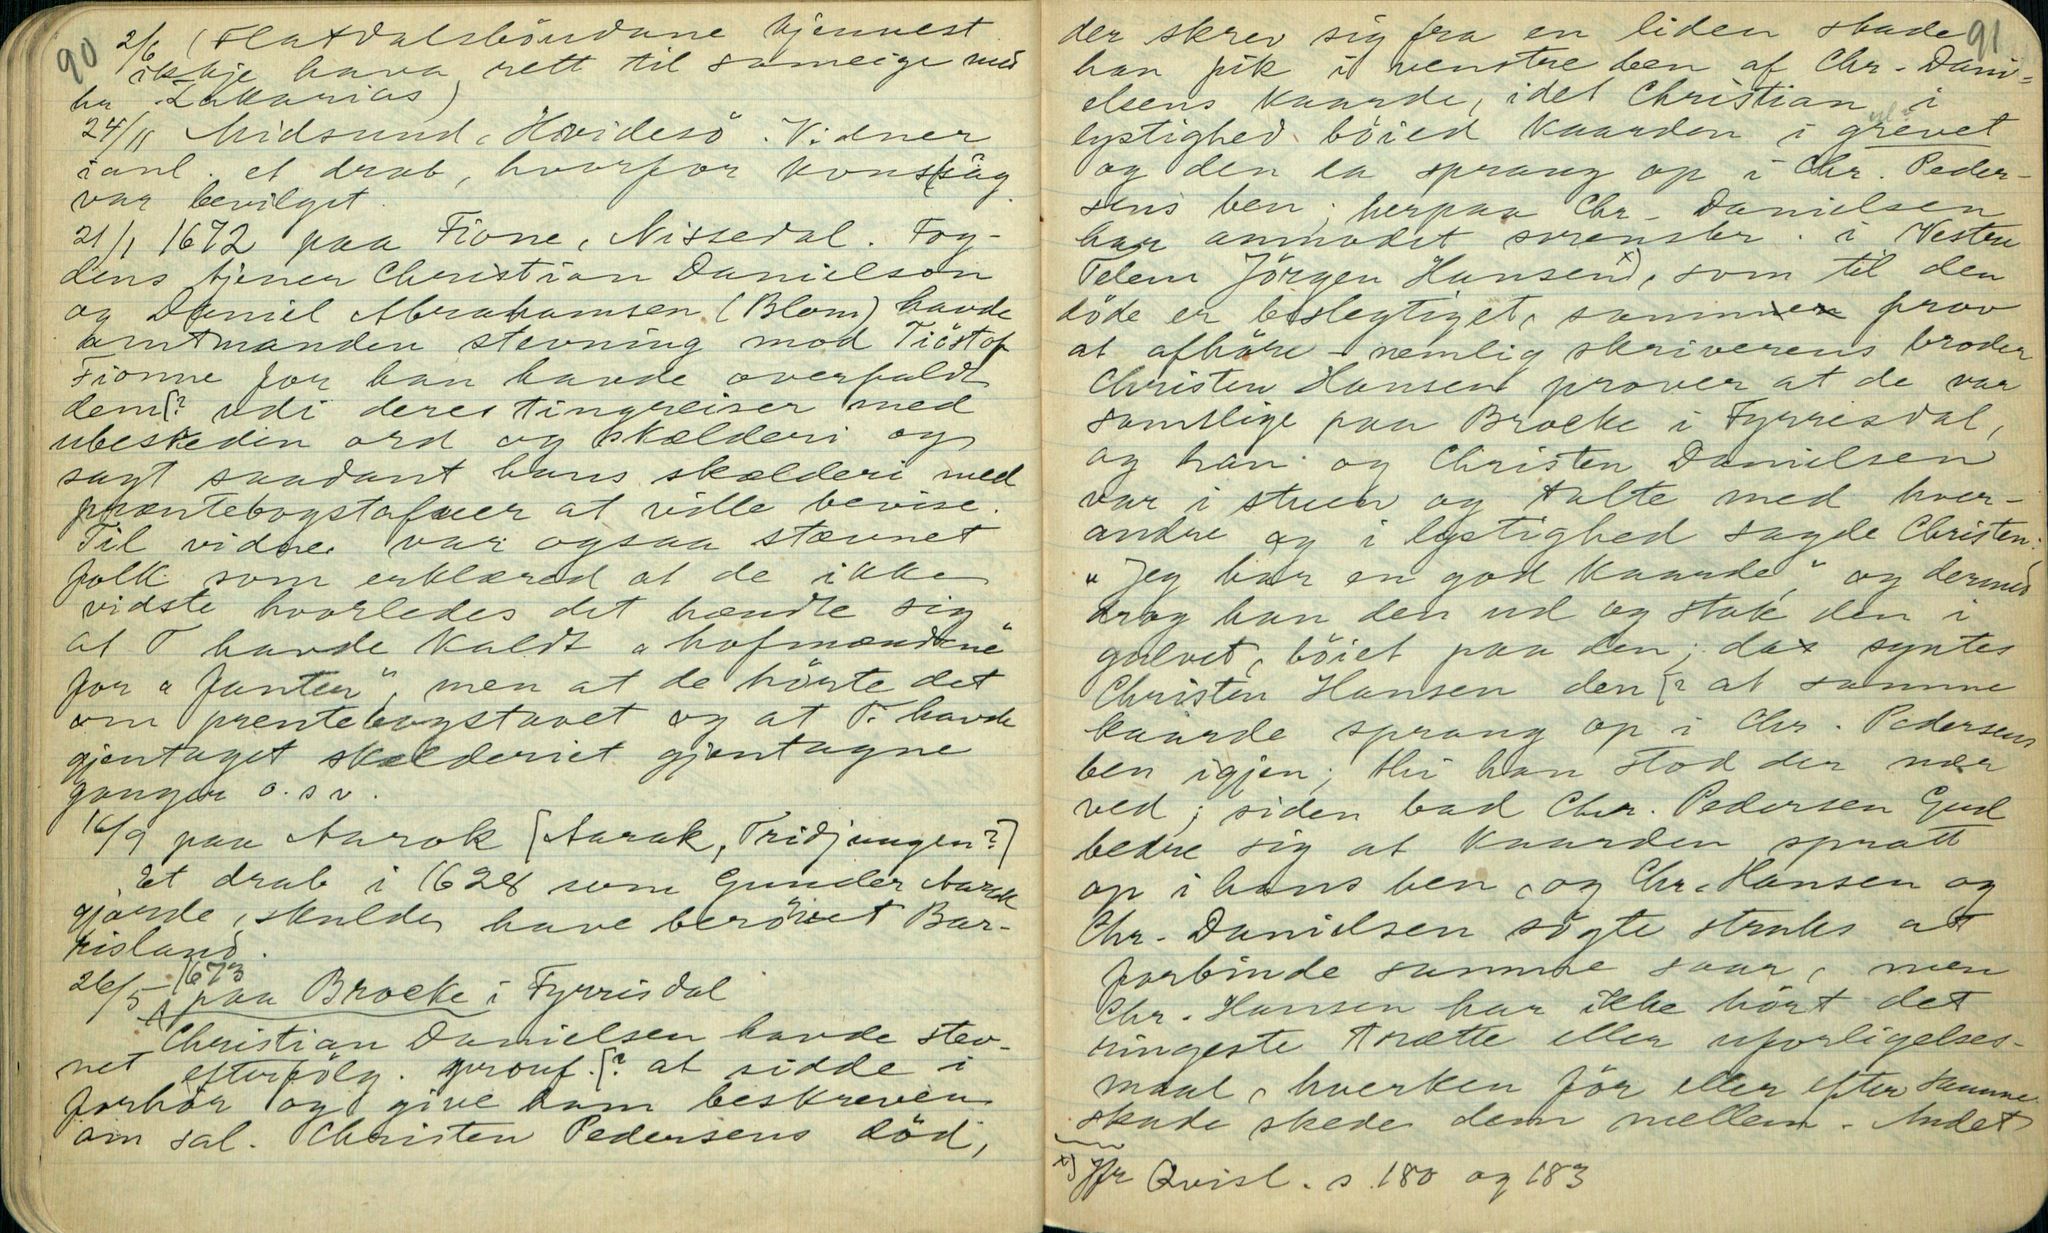 90
2/6 (Flatdalsböndane kjennest
ikkje hava rett til sameige med
hr. Zakarias)
24/11 Midsund, Hvidesö. Vidner
ianl. et drab, hvorfor
var bevilget.
21/1 1672 paa Fione, Nissedal. Fog-
dens tjener Christian Danielson
og Daniel Abrahamsen (Blom) havde
amtmanden stevning mod Tiöstof
Fionne for han havde overfaldt
dem [? udi deres tingreiser med
ubeskeden ord og skælderi og
sagt saadant hans skælderi med
prentebogstafuer at ville bevise.
Til vidne var ogsaa stævnet
folk som erklæred at de ikke
vidste hvorledes det hændte sig
at T havde kaldt "hofmændene"
for "fanter", men at de hörte det
om prentebogstavet og at T. havde
gjentaget skælderiet gjentagne
ganger o.s.v.
16/9 paa Aarok [Aarak, Tridjungen?]
Et drab i 1628 som Gunder Aarak
gjorde, skulde have berövet Bar-
risland.
26/5 1673 paa Brocke i Fyrrisdal
Christian Danielsen havde stev-
net efterfölg. prouf. [? at sidde i
forhör og give ham beskreven
om sal. Christen Pedersens död,
91
der skrev sig fra en liden skade
han fik i venstre ben af Chr. Dani-
elsens kaarde, idet Christian i
lystighed böied kaarden i grevet
og den da sprang op i Chr. Peder-
sens ben; herpaa Chr. Danielsen
har anmodet sorenskr. i Vestre
Telem Jörgen Hansen x), som til den
döde er beslegtiget, samme prov
at afhöre – nemlig skriverens broder
Christen Hansen prover at de var
samtlige paa Brocke i Fyrrisdal,
og han og Christen Danielsen
var i stuen og talte med hver-
andre og i lystighed sagde Christen:
"Jeg har en god kaarde," og dermed
drog han den ud og stak den i
golvet, böiet paa den; da syntes
Christen Hansen den [? at samme
kaarde sprang op i Chr. Pedersens
ben igjen; thi han stod der nær
ved; siden bad Chr. Pedersen Gud
bedre sig at kaarden spratt
op i hans ben, og Chr. Hansen og
Chr. Danielsen sögte straks at
forbinde samme saar, men
Chr. Hansen har ikke hört det
ringeste trætte eller uforligelses-
maal, hverken för eller efter samme
skade skede dem mellem. Andet
x) Jfr Qvisl. s. 180 og 183